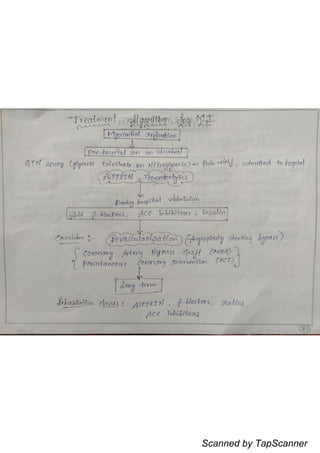 Treatment Algorithm for MI
Myocardial infarction
Pre-hospital or on arrival
GTN spray (glyceryl trinitrate or Nitroglycerin) → Pain relief, admitted to hospital
ASPIRIN, Thrombolytics
During hospital admission
β-blockers, ACE inhibitors, Insulin
Consider :- Revascularization (Angioplasty stenting bypass)
Coronary Artery Bypass Graft (CABG)
Percutaneous Coronary Intervention (PCI)
Long term
classes : ASPIRIN, β-blockers, statins,
ACE inhibitors.
Scanned by TapScanner